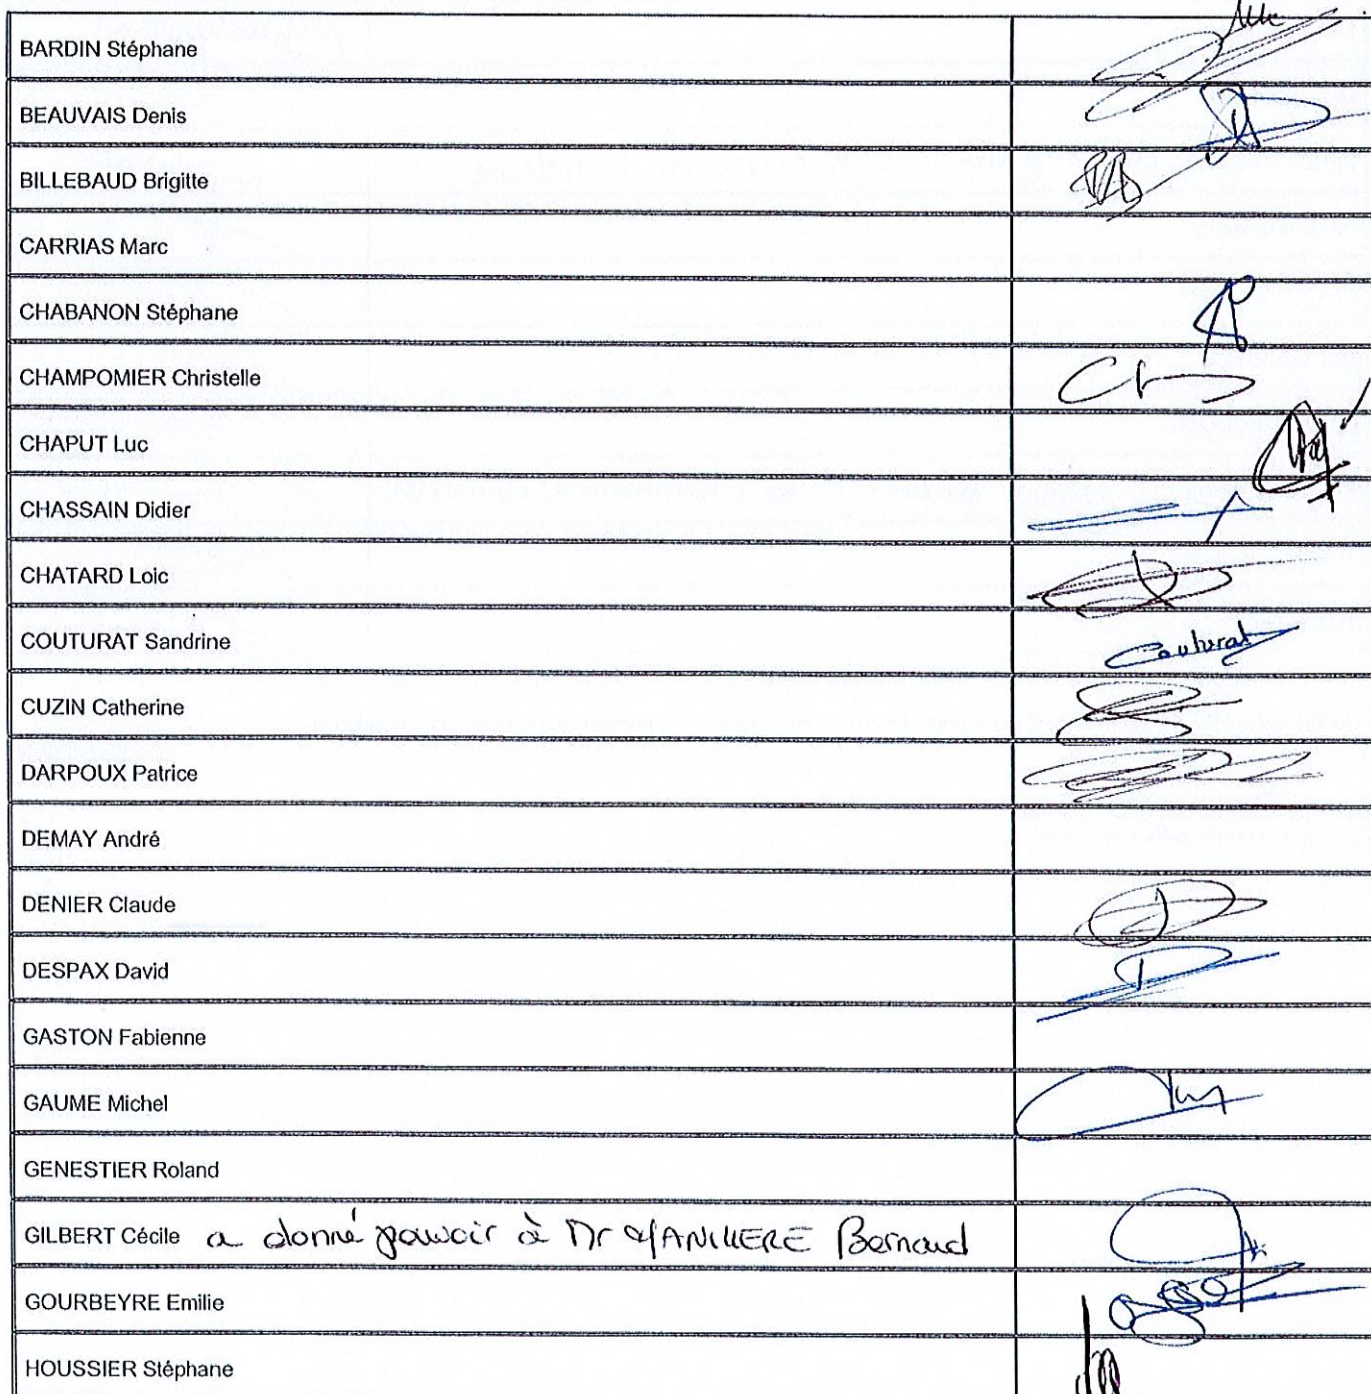 BARDIN Stéphane
BEAUVAIS Denis
BILLEBAUD Brigitte
CARRIAS Marc
CHABANON Stéphane
CHAMPOMIER Christelle
CHAPUT Luc
CHASSAIN Didier
CHATARD Loic
COUTURAT Sandrine Couturat
CUZIN Catherine
DARPOUX Patrice
DEMAY André
DENIER Claude
DESPAX David
GASTON Fabienne
GAUME Michel
GENESTIER Roland
GILBERT Cécile a donné pouvoir à Mr Bernard
GOURBEYRE Emilie
HOUSSIER Stéphane